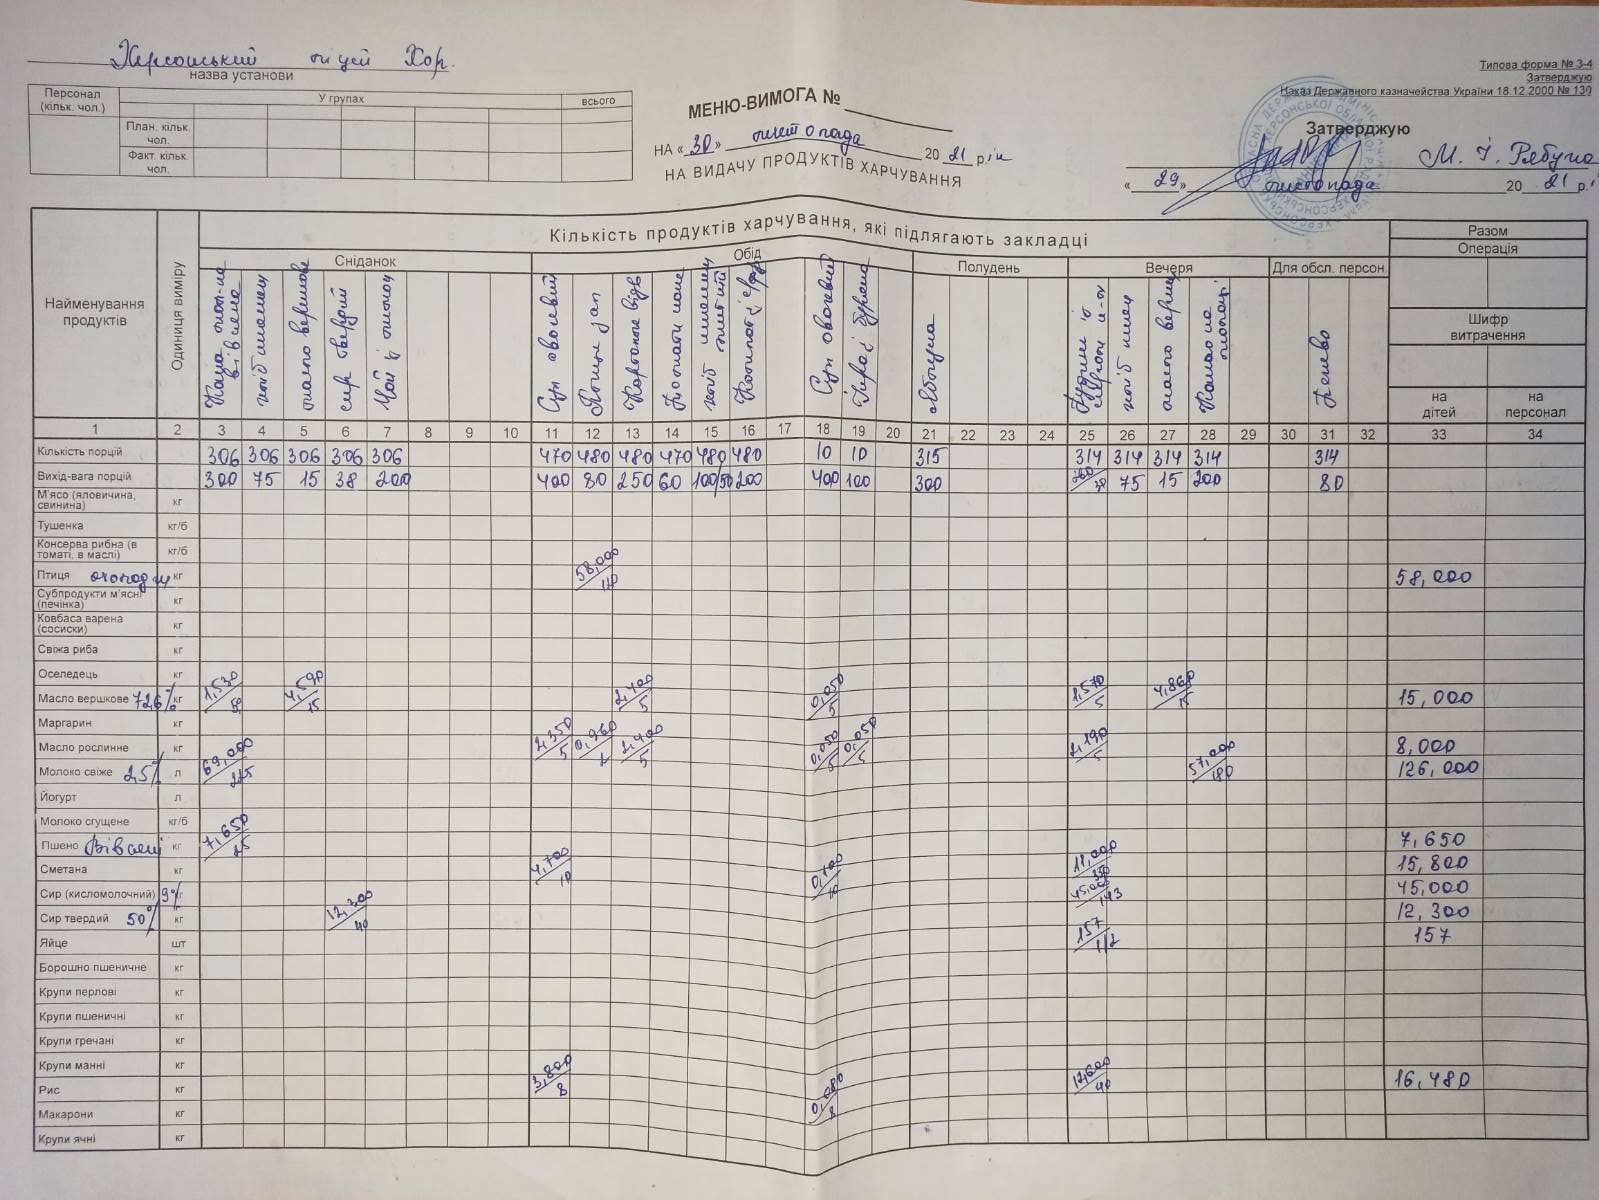 Херсонський ліцей Хор.
назва установи
Персонал (кільк. чол.)
У групах
всього
План. кільк. чол.
Факт. кільк. чол.
МЕНЮ-ВИМОГА №
НА «30» листопада 2021 р.
НА ВИДАЧУ ПРОДУКТІВ ХАРЧУВАННЯ
Типова форма № З-4
Затверджую
Наказ Державного казначейства України 18.12.2000 № 130
Затверджую
М. І. Рябуха
«29» листопада 2021 р.
Найменування продуктів
Одиниця виміру
Кількість продуктів харчування, які підлягають закладці
Разом
Операція
Сніданок
Обід
Полудень
Вечеря
Для обсл. персон.
Шифр витрачення
на дітей
на персонал
хліб пшенич
масло вершкове
сир твердий
Чай
Суп овочевий
хліб
Суп овочевий
Яблука
хліб пшен
масло верш
Какао на молоці
Печиво
1 2 3 4 5 6 7 8 9 10 11 12 13 14 15 16 17 18 19 20 21 22 23 24 25 26 27 28 29 30 31 32 33 34
Кількість порцій 306 306 306 306 306 470 480 480 470 480 480 10 10 315 314 314 314 314 314
Вихід-вага порцій 300 75 15 38 200 400 80 250 60 100/50 200 400 100 300 75 15 200 80
М'ясо (яловичина, свинина) кг
Тушенка кг/б
Консерва рибна (в томаті, в маслі) кг/б
Птиця кг 58,000 58,000
Субпродукти м'ясні (печінка) кг
Ковбаса варена (сосиски) кг
Свіжа риба кг
Оселедець кг
Масло вершкове 72,6% кг 1,530/5 4,590/15 2,400/5 0,050/5 1,570/5 4,860/15 15,000
Маргарин кг
Масло рослинне кг 2,350/5 0,960/2 2,400/5 0,050/5 0,050/5 2,190/5 8,000
Молоко свіже 2,5% л 69,000/225 57,000/180 126,000
Йогурт л
Молоко сгущене кг/б
Пшено Вівсяні кг 7,650/25 7,650
Сметана кг 4,700/10 0,100/10 11,000/350 15,800
Сир (кисломолочний) 9% кг 45,000/143 45,000
Сир твердий 50% кг 12,300/40 12,300
Яйце шт 157/1/2 157
Борошно пшеничне кг
Крупи перлові кг
Крупи пшеничні кг
Крупи гречані кг
Крупи манні кг
Рис кг 3,800/8 0,080/8 12,600/40 16,480
Макарони кг
Крупи ячні кг